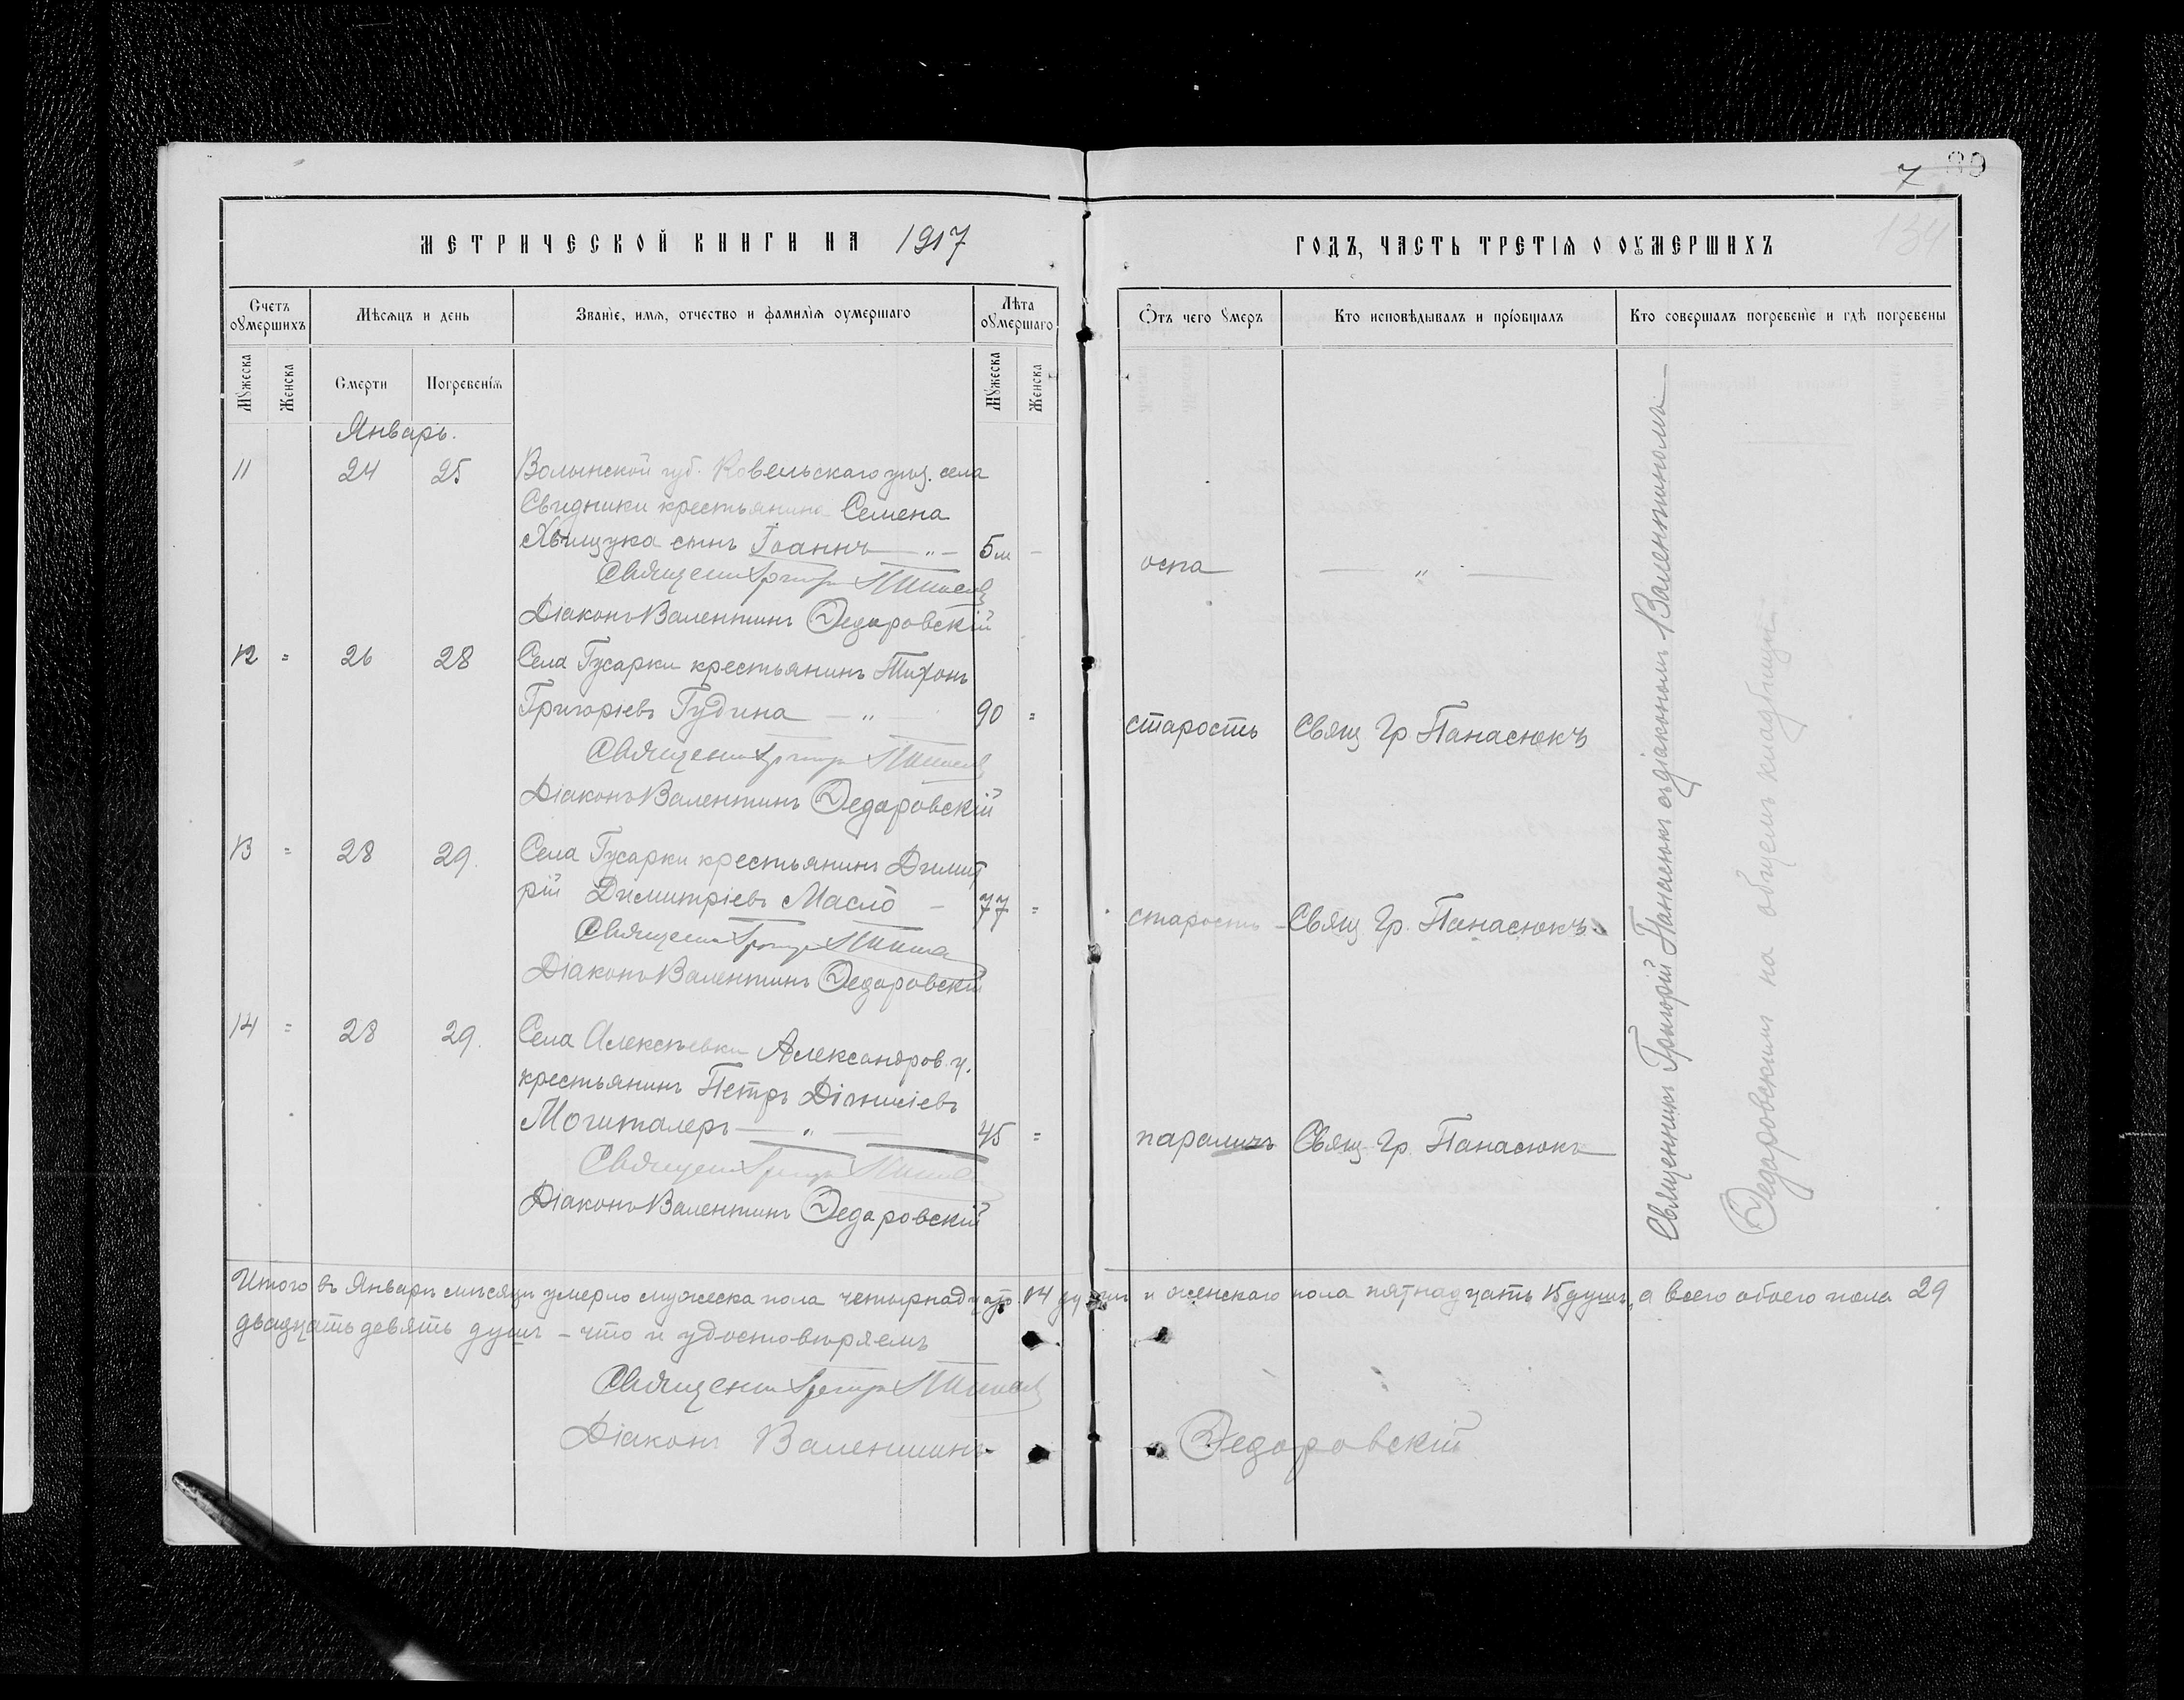 7 89
134
МЕТРИЧЕСКОЙ КНИГИ НА 1917
ГОДЪ, ЧАСТЬ ТРЕТІЯ О ОУМЕРШИХЪ
Счетъ оумершихъ
Мѣсяцъ и день
Званіе, имя, отчество и фамилія оумершаго
Лѣта оумершаго
Отъ чего умеръ
Кто исповѣдывалъ и пріобщалъ
Кто совершалъ погребеніе и гдѣ погребены
Мужеска
Женска
Смерти
Погребенія
Мужеска
Женска
Январь.
11 24 25 Волынской губ. Ковельскаго уѣзд. села
Свидники крестьянина Семена
сынъ Іоаннъ — „ — 5 м –
оспа — „ —
Діаконъ Валентинъ Ѳедоровскій
12 = 26 28 Села Гусарки крестьянинъ Тихонъ
Григоріевъ Гудина — „ 90 =
старость Свящ Гр Панасюкъ
Діаконъ Валентинъ Ѳедоровскій
13 = 28 29. Села Гусарки крестьянинъ Димит
рій Димитріевъ Масло – 77 =
старость – Свящ Гр. Панасюкъ.
Діаконъ Валентинъ Ѳедоровскій
14 = 28 29. Села Алексѣевки Александров. у.
крестьянинъ Петръ Діонисіевъ
— „ — 45 =
параличъ Свящ Гр. Панасюкъ
Діаконъ Валентинъ Ѳедоровскій
Священникъ Григорій Панасюкъ съ діакономъ Валентиномъ —
Ѳедоровскимъ на общемъ кладбищѣ
Итого въ Январѣ мѣсяцѣ умерло мужеска пола четырнадцать 14 душъ и женскаго пола пятнадцать 15 душъ, а всего обоего пола 29
двадцать девять душъ – что и удостовѣряемъ
Діаконъ Валентинъ Ѳедоровскій